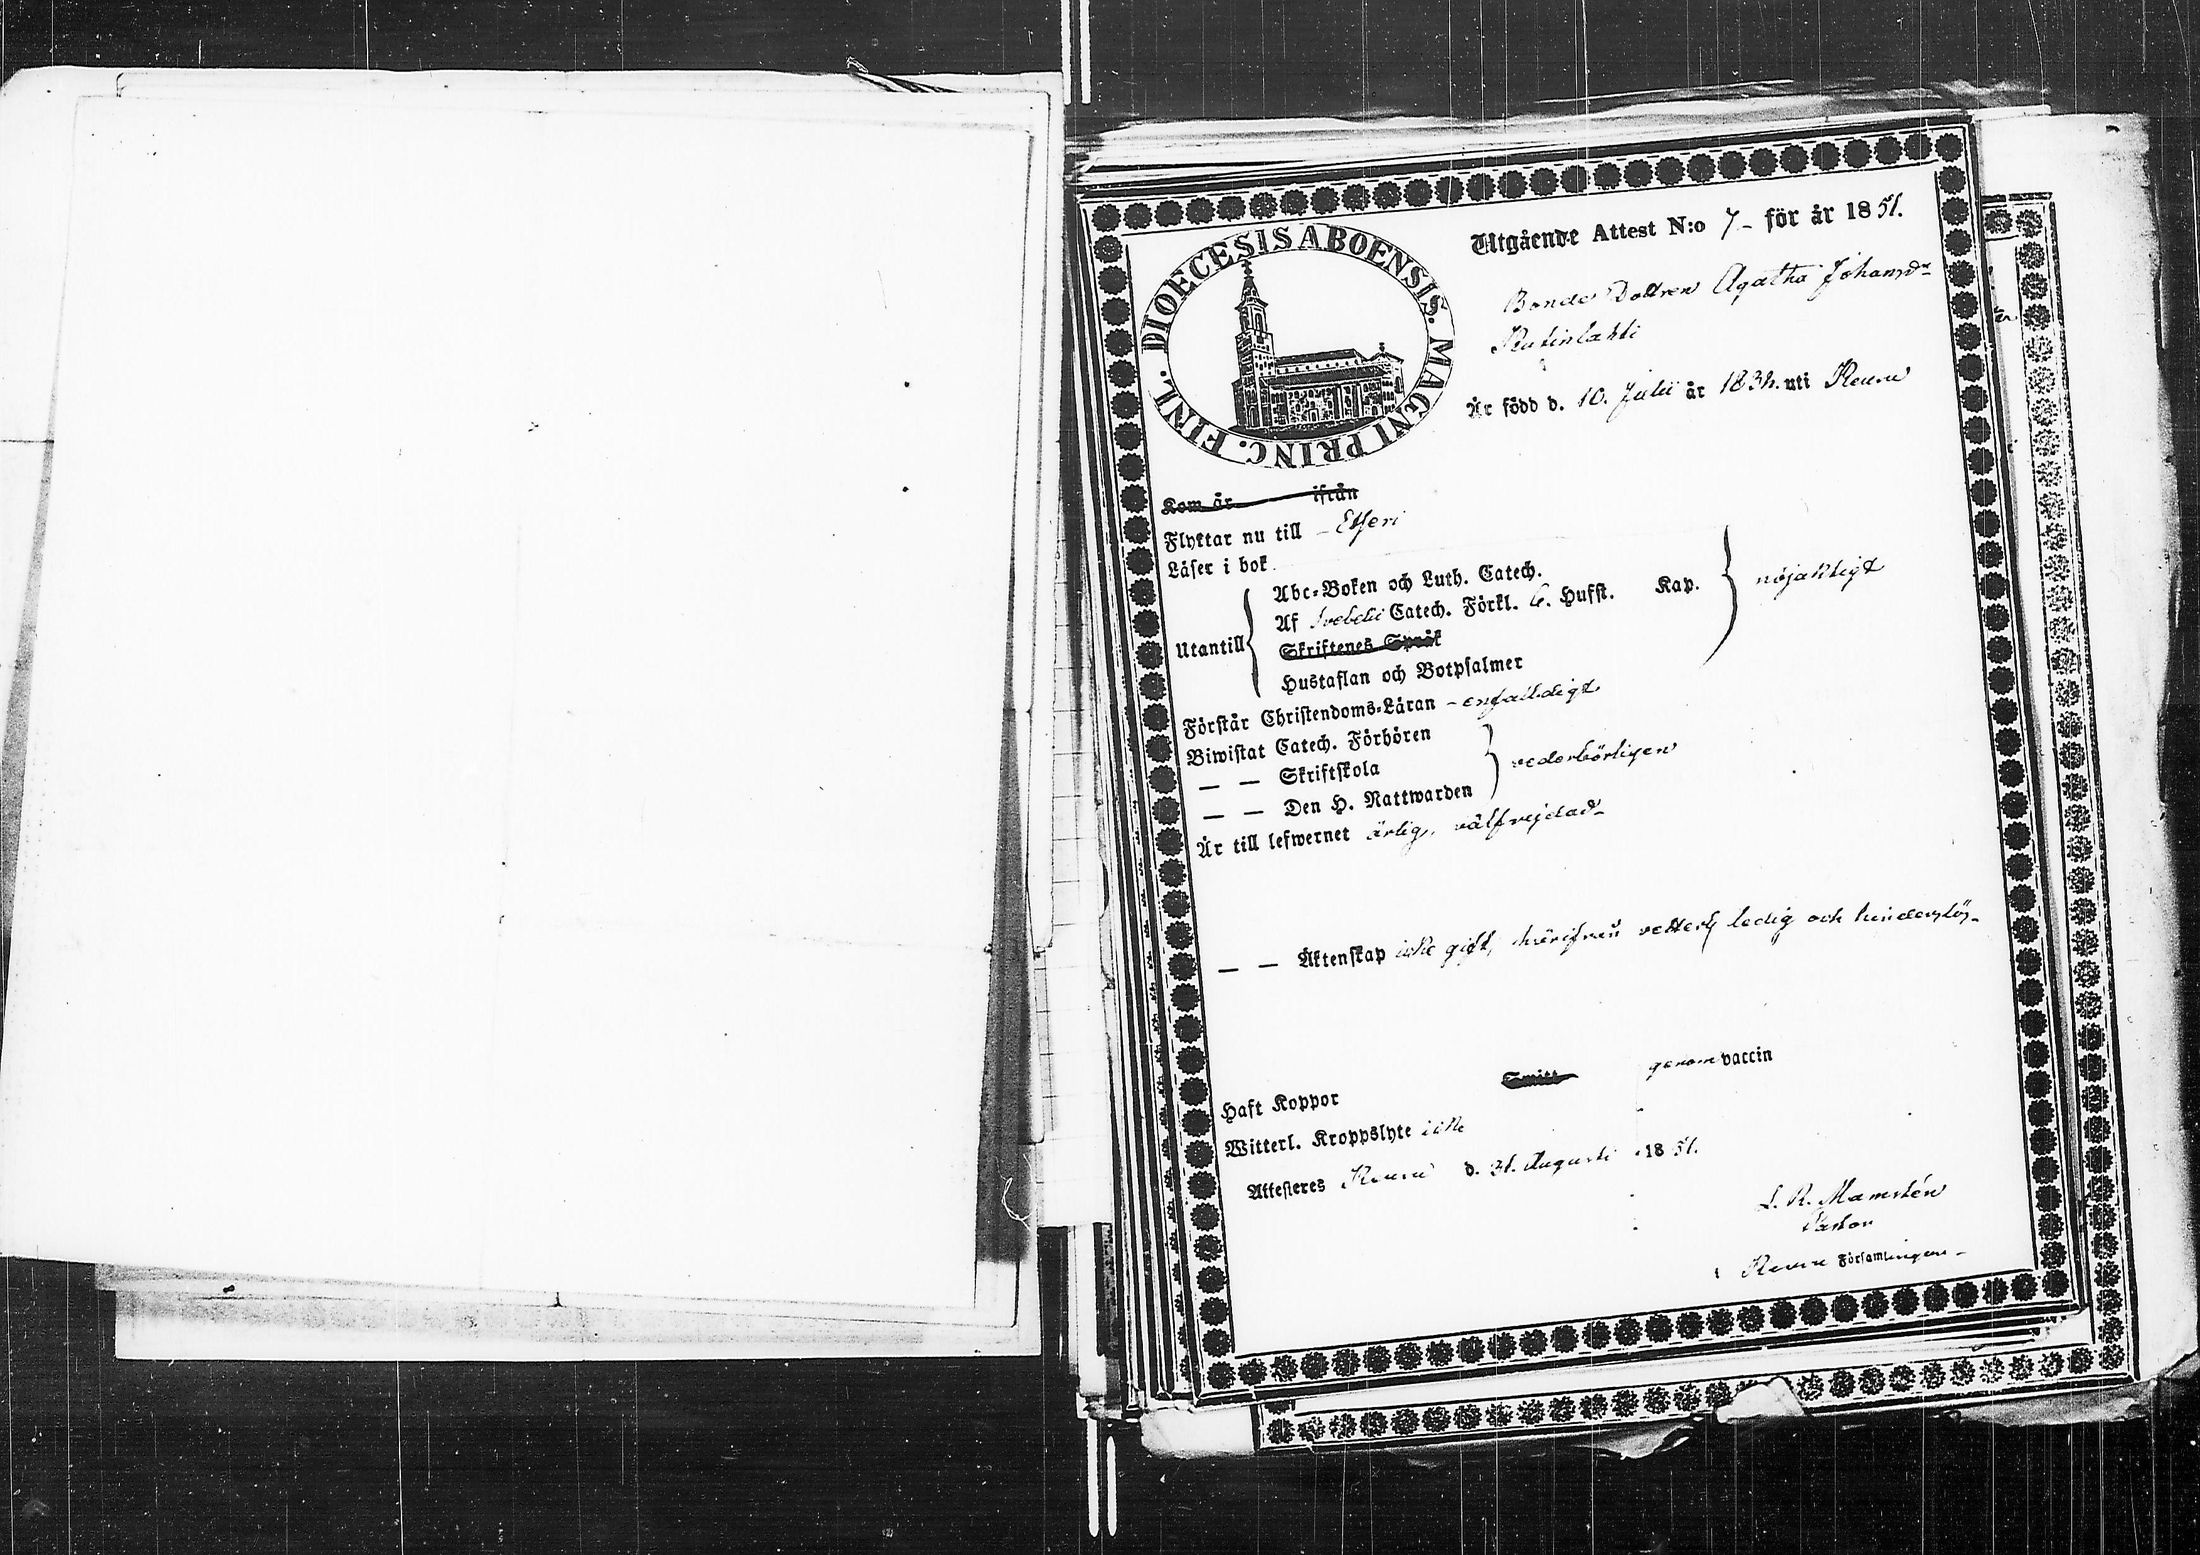 DIOECESIS ABOENSIS. MAGNI PRINC. FINL.
Utgående Attest N:o 7 - för år 1851.
Bonde Dottren Agatha Johansdr
Är född d. 10. Julii år 1834. uti Keuru
Kom år ifrån
Flyttar nu till - Etseri
Läser i bok
Utantill
Abc-Boken och Luth. Catech.
Af Svebelii Catech. Förkl. 6. Hufst. Kap.
nöjaktigt
Skriftenes Språk
Hustaflan och Botpsalmer
Förstår Christendoms-Läran - enfaldigt
Biwistat Catech. Förhören
— — Skriftskola
vederbörligen
— — Den H. Nattwarden
Är till lefwernet ärlig, välfrejdad -
— — Äktenskap icke gift, härifrån vetterl. ledig och hinderslös -
Haft Koppor Smitt genom vaccin
Witterl. Kroppslyte icke
Attesteres Keuru d. 31. Augusti 1851.
Pastor
i Keuru Församlingen -